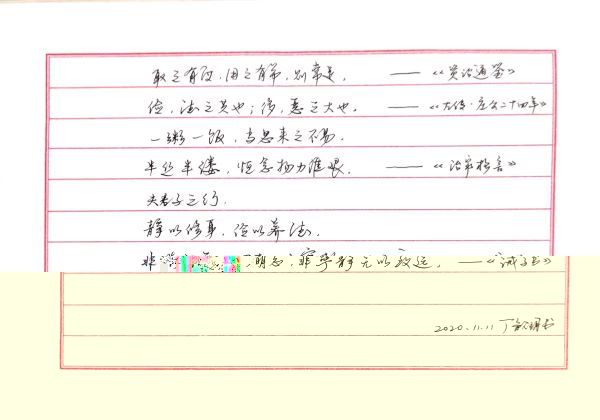 取之有度，用之有节，则常足。 ——《资治通鉴》
俭，德之共也；侈，恶之大也。 ——《左传·庄公二十四年》
一粥一饭，当思来之不易。
半丝半缕，恒念物力维艰。 ——《治家格言》
夫君子之行，
静以修身，俭以养德。
非 明志；非宁静无以致远。 ——《诫子书》
2020.11.11 丁 书